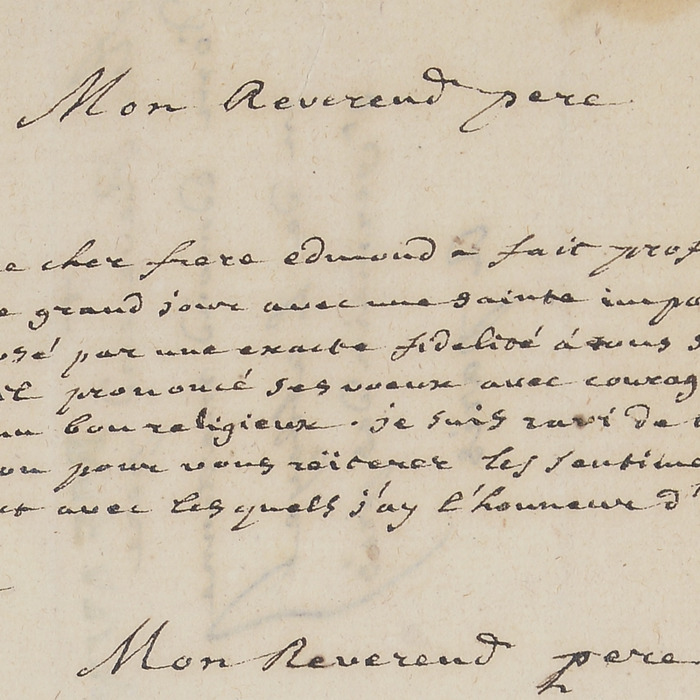 Mon Reverend pere
e cher frere edmond a fait prof
e grand jour avec une sainte impa
osé par une exacte fidelité á tous s
il prononcé ses voeux avec courag
un bon religieux . je suis ravi de
on pour vous rëiterer les sentime
ct avec lesquels j'ay l'honneur d'
Mon Reverend pere